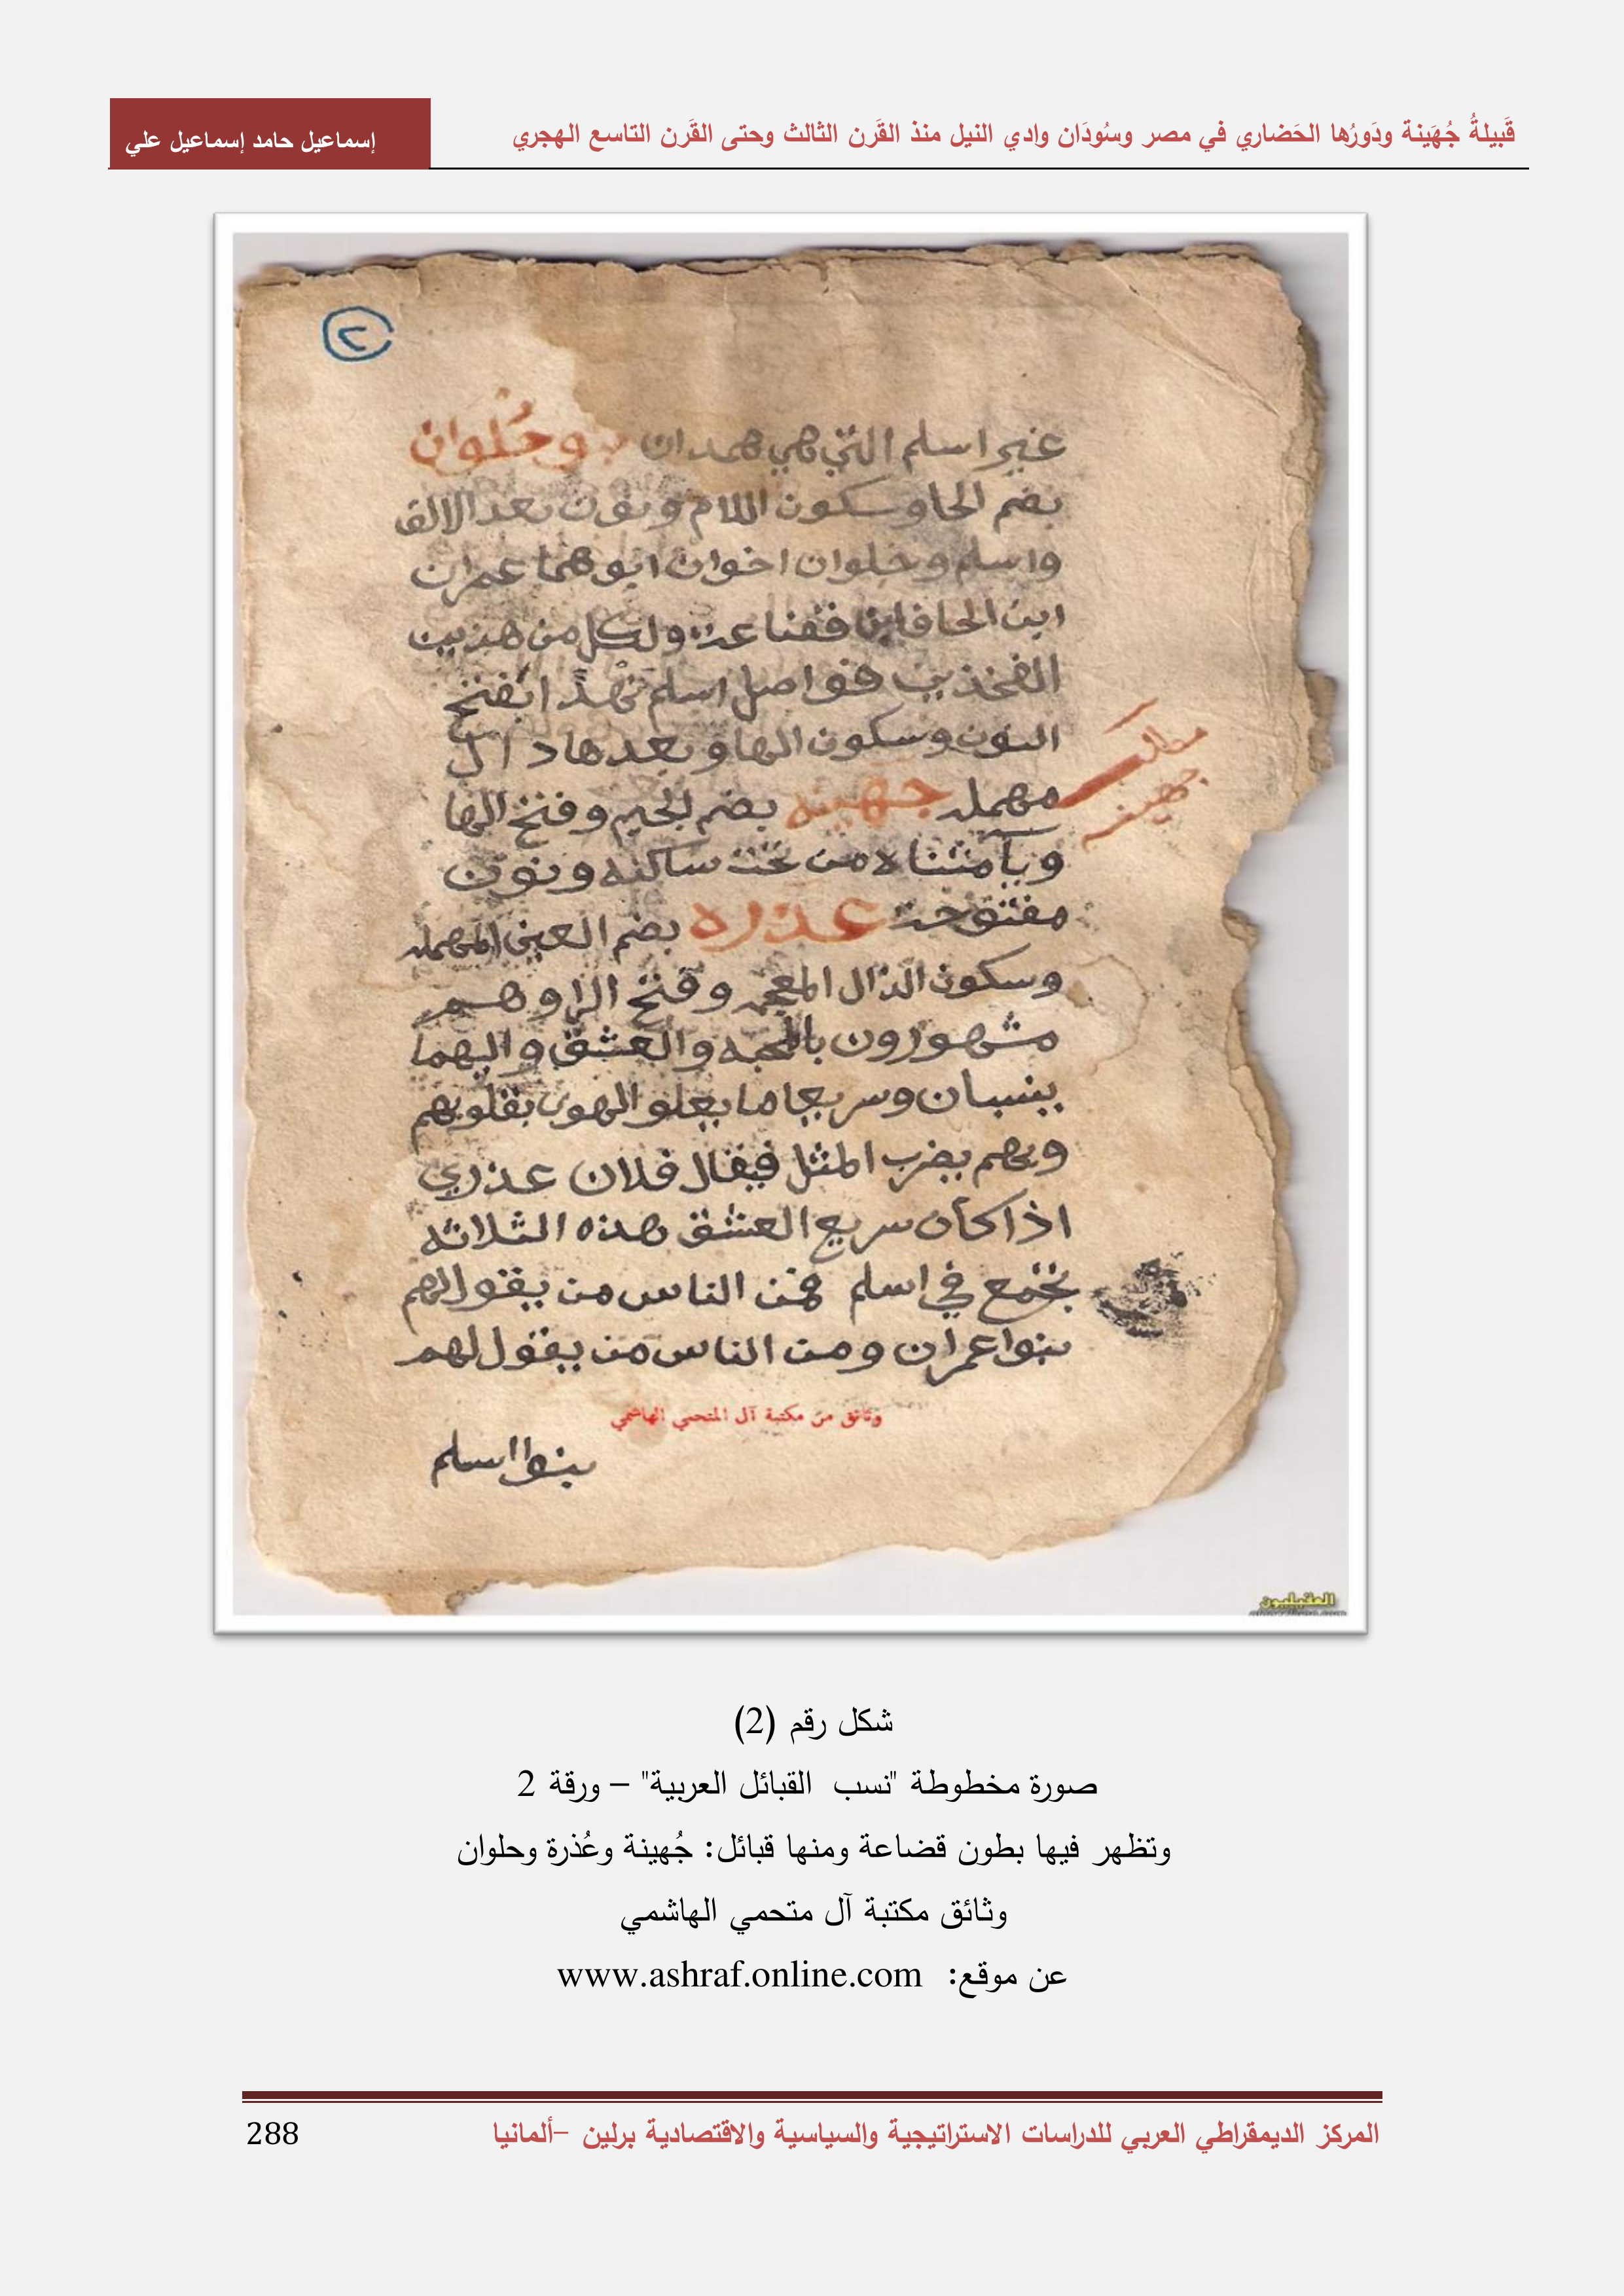 قَبيلةُ جُهَينة ودَورُها الحَضاري في مصر وسُودَان وادي النيل منذ القَرن الثالث وحتى القَرن التاسع الهجري
إسماعيل حامد إسماعيل علي
٢
غير اسلم التي هي همدان وحُلوان
بضم الحا وسكون اللام ونون بعد الالف
واسلم وحلوان اخوان ابوهما عمران
ابن الحاف ابن قضاعه ولكل من هذين
الفخذين فواصل اسلم نهدًا بفتح
النون وسكون الها وبعدها دال
مهمله جهينه بضم الجيم وفتح الها
مطلب
جهينه
ويآ مثناه من تحت ساكنه ونون
مفتوحه عذره بضم العين المهمله
وسكون الذال المعجمه وفتح الرا وهم
مشهورون بالمحبه والعشق واليهما
ينسبان وسريعا ما يعلو الهوى بقلوبهم
وبهم يضرب المثل فيقال فلان عذري
اذا كان سريع العشق هذه الثلاثه
تجتمع في اسلم فمن الناس من يقول لهم
بنوا عمران ومن الناس من يقول لهم
وثائق من مكتبة آل المتحمي الهاشمي
بنوا اسلم
العقيليون
شكل رقم (2)
صورة مخطوطة "نسب القبائل العربية" – ورقة 2
وتظهر فيها بطون قضاعة ومنها قبائل: جُهينة وعُذرة وحلوان
وثائق مكتبة آل متحمي الهاشمي
عن موقع: www.ashraf.online.com
المركز الديمقراطي العربي للدراسات الاستراتيجية والسياسية والاقتصادية برلين –ألمانيا
288